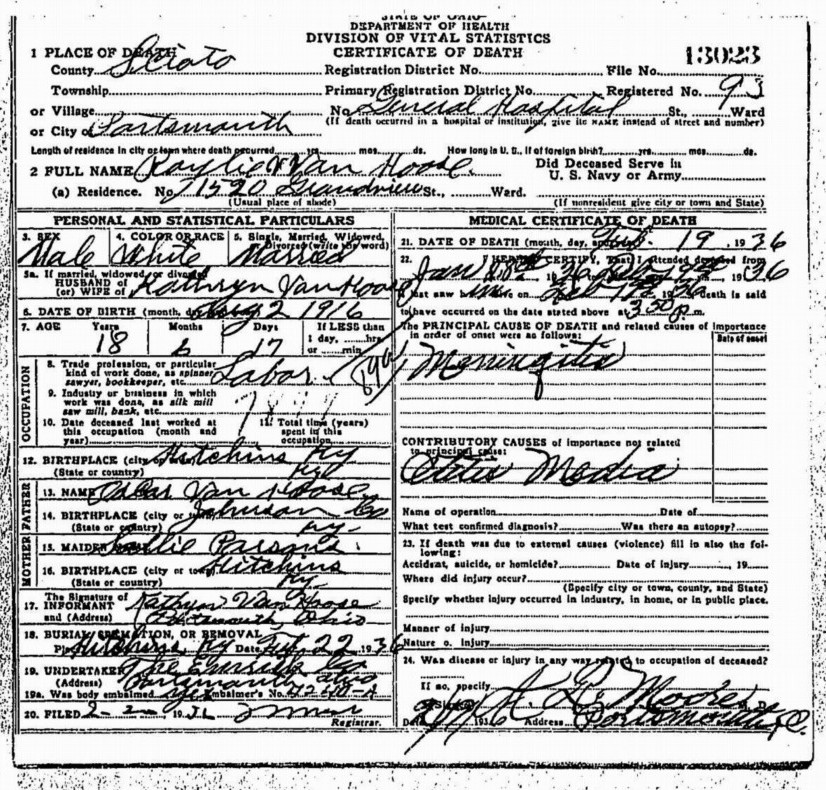 STATE OF OHIO
DEPARTMENT OF HEALTH
DIVISION OF VITAL STATISTICS
CERTIFICATE OF DEATH
13023
1 PLACE OF DEATH
County Scioto Registration District No. File No.
Township Primary Registration District No. Registered No. 93
or Village No. General Hospital St., Ward
or City of Portsmouth (If death occurred in a hospital or institution, give its NAME instead of street and number)
Length of residence in city or town where death occurred yrs. mos. ds. How long in U. S., if of foreign birth? yrs. mos. ds.
2 FULL NAME Van Hoose Did Deceased Serve in
U. S. Navy or Army
(a) Residence. No. 1520 Grandview St., Ward.
(Usual place of abode) (If nonresident give city or town and State)
PERSONAL AND STATISTICAL PARTICULARS
3. SEX 4. COLOR OR RACE 5. Single, Married, Widowed,
Divorced (write the word)
Male White Married
5a. If married, widowed, or divorced
HUSBAND of
(or) WIFE of Kathryn Van Hoose
6. DATE OF BIRTH (month, 2 1916
7. AGE Years Months Days If LESS than
1 day, hrs.
or min.
18 6 17
8. Trade, profession, or particular
kind of work done, as spinner,
sawyer, bookkeeper, etc. Labor
9. Industry or business in which
work was done, as silk mill
saw mill, bank, etc.
10. Date deceased last worked at
this occupation (month and
year) 11. Total time (years)
spent in this
occupation
OCCUPATION
12. BIRTHPLACE (city or Hitchins Ky
(State or country) Ky
FATHER
13. NAME Van Hoose
14. BIRTHPLACE (city or Johnson Co
(State or country) Ky.
MOTHER
15. MAIDEN Sallie Parsons
16. BIRTHPLACE (city or town) Hitchins
(State or country) Ky
The Signature of
17. INFORMANT Kathryn Van Hoose
and (Address) Portsmouth, Ohio
18. BURIAL, CREMATION, OR REMOVAL
Hitchins, Ky Date Feb. 22, 1936
19. UNDERTAKER The Emrick Co
(Address) Portsmouth Ohio
19a. Was body embalmed yes Embalmer's No.
20. FILED 19 Registrar.
MEDICAL CERTIFICATE OF DEATH
21. DATE OF DEATH (month, day, and Feb. 19, 1936
22. I HEREBY CERTIFY, That I attended deceased from
Jan 36 Feb 19th 1936
I last saw alive on Feb 19 36 death is said
to have occurred on the date stated above at 3:50 P. m.
The PRINCIPAL CAUSE OF DEATH and related causes of importance
in order of onset were as follows: Date of onset
Meningitis
CONTRIBUTORY CAUSES of importance not related
to principal cause:
Otitis Media
Name of operation Date of
What test confirmed diagnosis? Was there an autopsy?
23. If death was due to external causes (violence) fill in also the fol-
lowing:
Accident, suicide, or homicide? Date of injury , 19
Where did injury occur?
(Specify city or town, county, and State)
Specify whether injury occurred in industry, in home, or in public place.
Manner of injury
Nature o. injury
24. Was disease or injury in any way related to occupation of deceased?
If so, specify
Moore
1936 Address Portsmouth, O.